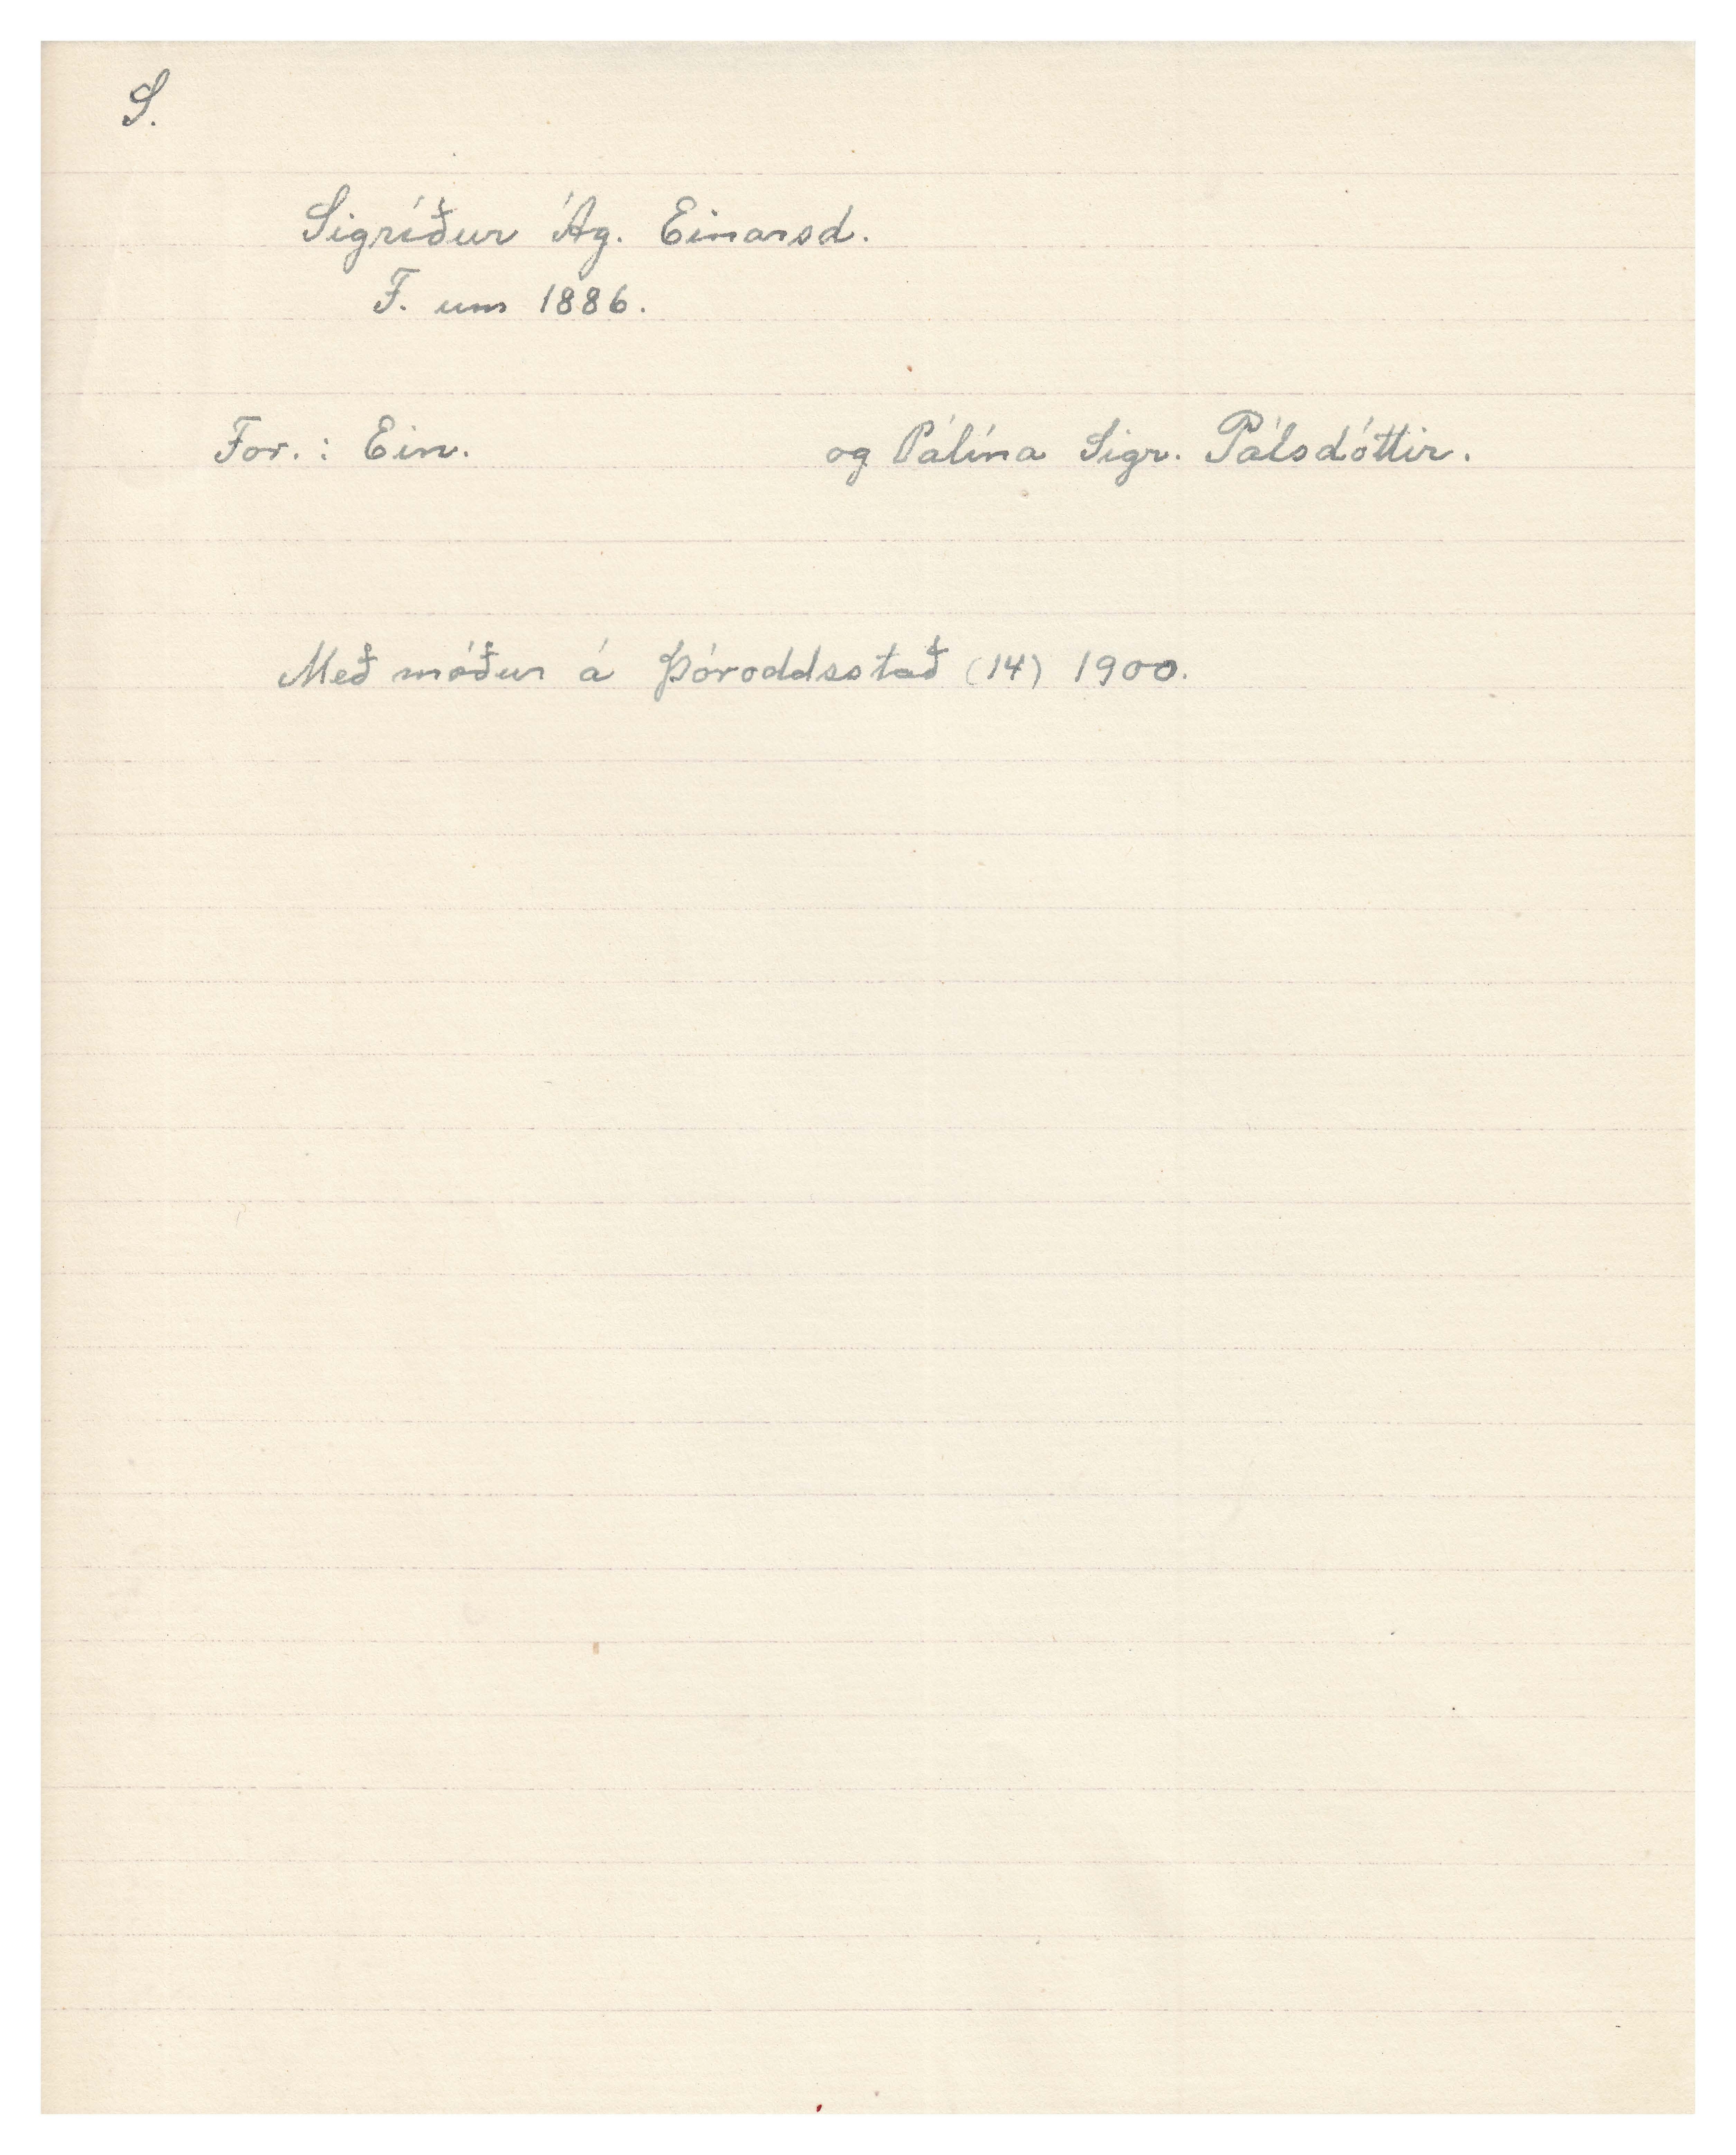 S.
Sigríður Ág. Einarsd.
F. um 1886.
For.: Ein. og Pálína Sigr. Pálsdóttir.
Með móður á Þóroddsstað (14) 1900.